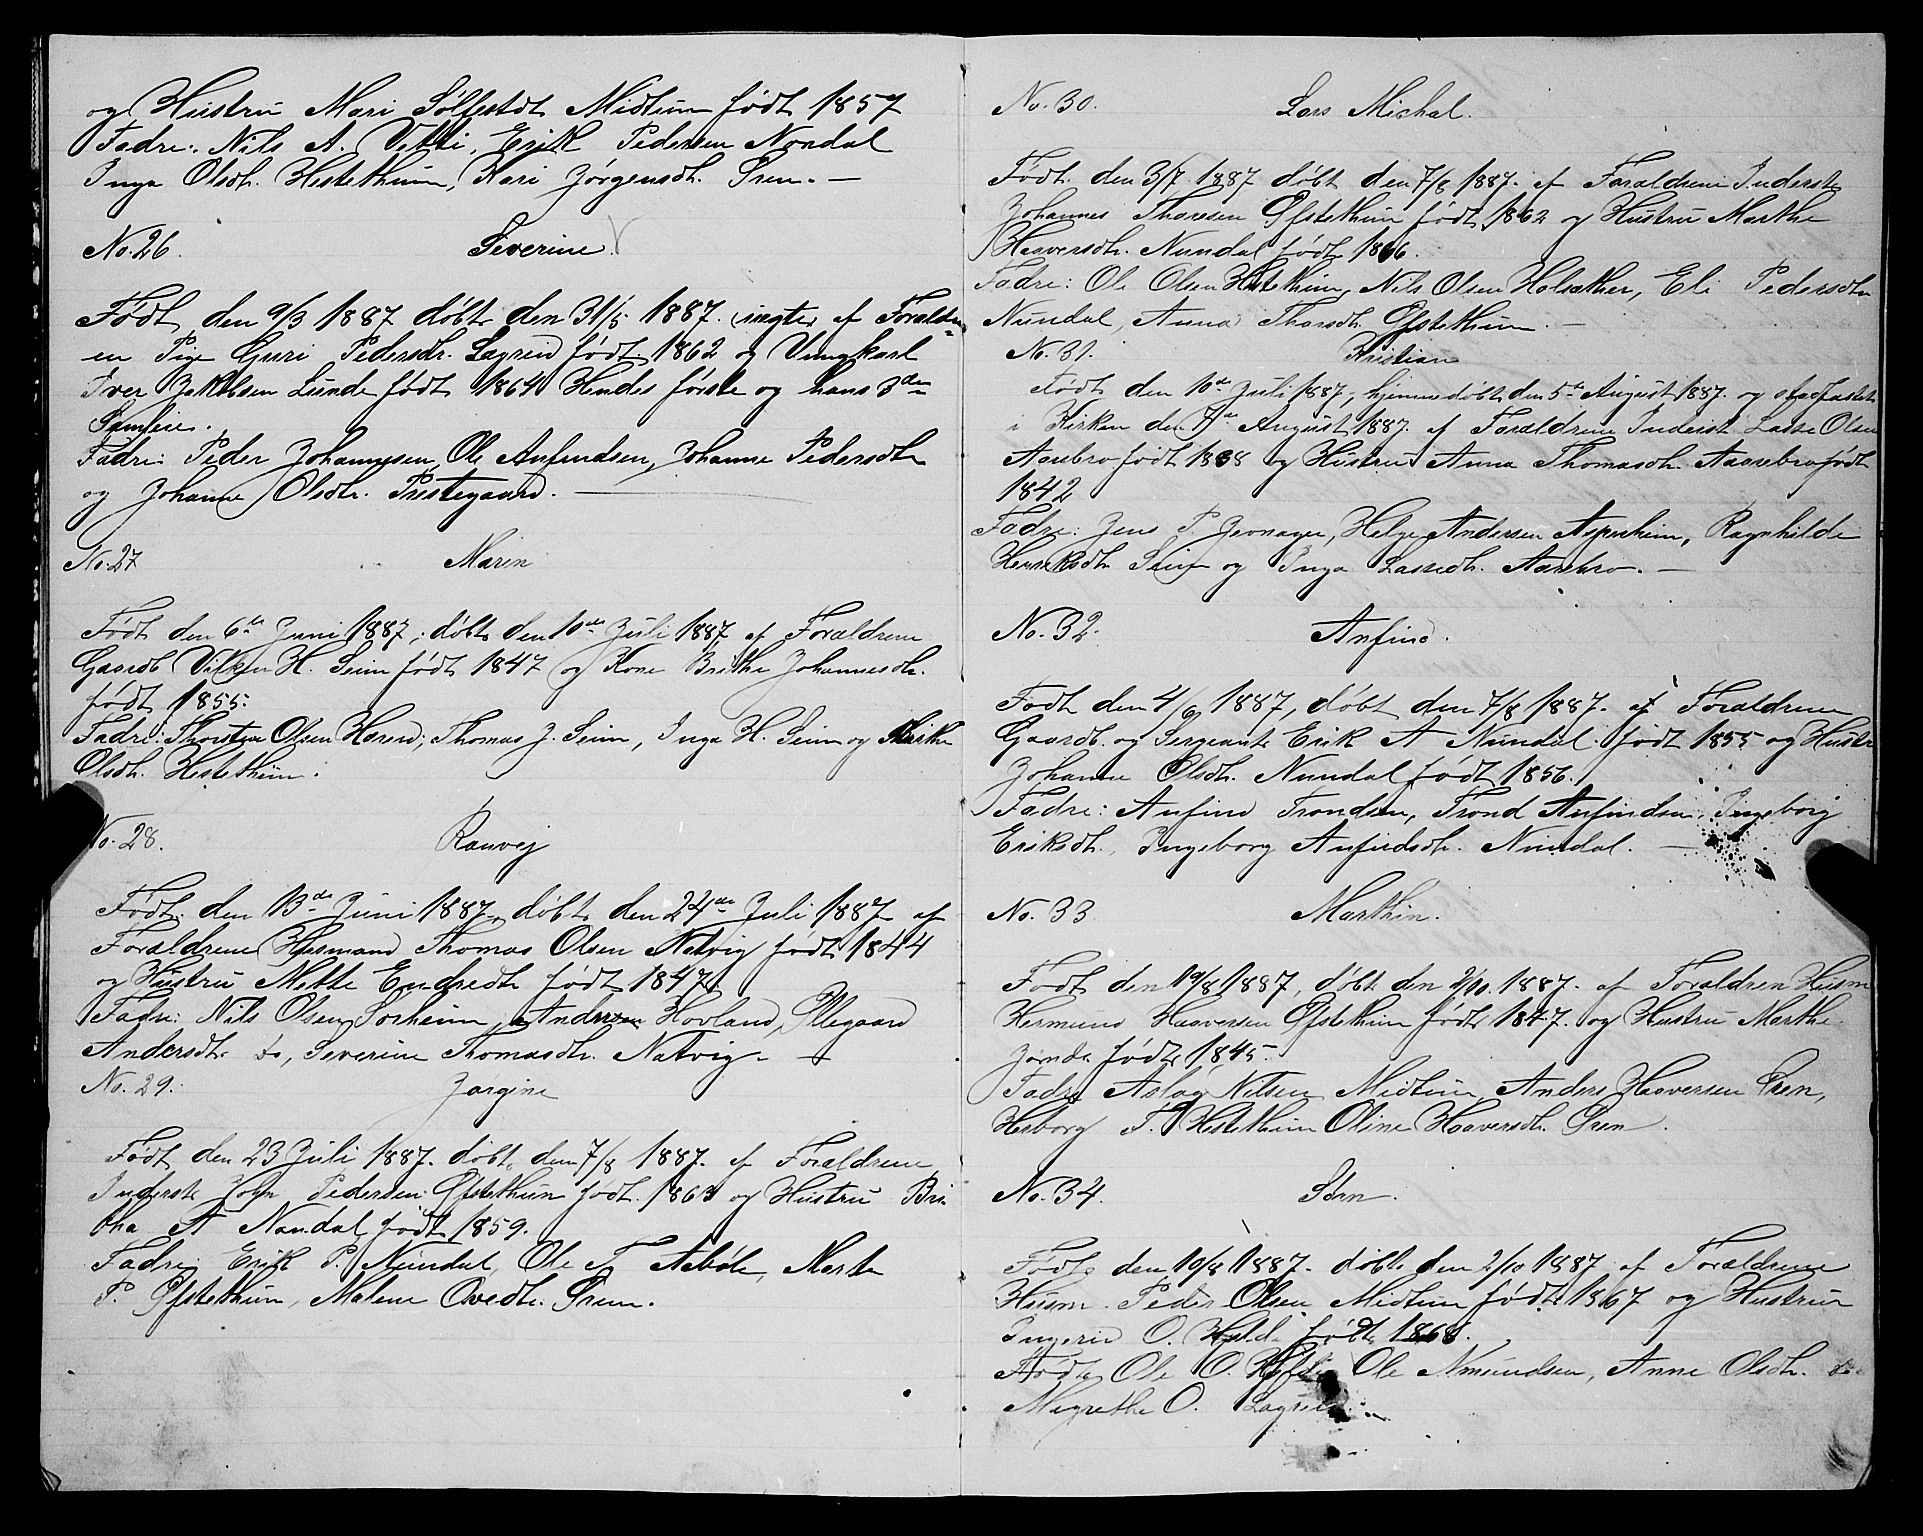 og Hustru Mari Sølfestdt. Midtun født 1857
Fadre: Nils A. Vetti, Erik Pedersen Nondal
Inga Olsdt. Hestethun, Kari Jørgensdt. Gren. —
No. 26. Severine.
Født den 9/3 1887 døbt den 31/5 1887. uægte af Forældre
en Pige Guri Pedersdt. Lægreid født 1862 og Ungkarl
Iver Jakobsen Lunde født 1864 Hendes første og hans 3de
Samleie.
Fadre: Peder Johannesen, Ole Anfindsen, Johanne Pedersdt.
og Johanne Olsdt. Prestegaard. —
No. 27 Marin
Født den 6te Juni 1887, døbt den 10de Juli 1887 af Forældrene
Gaardb. Vilken H. Seim født 1847 og Kone Brithe Johannesdt.
født 1855.
Fadre: Thorsten Olsen Hæreid, Thomas J. Seim, Inga H. Seim og Marthe
Olsdt. Hestethun.
No. 28. Ranvej
Født den 13de Juni 1887, døbt den 24de Juli 1887 af
Forældrene Husmand Thomas Olsen Natvig født 1844
og Hustru Mette Endredt. født 1847.
Fadre: Nils Olsen Sorheim, Andersen Hovland, Øllegaard
Andersdt. do, Severine Thomasdt. Natvig. —
No. 29. Jørgine
Født den 23 Juli 1887. døbt den 7/8 1887. af Forældrene
Inderste John Pedersen Øfstethun født 1863 og Hustru Bri
tha A Nondal født 1859.
Fadre Erik P. Nundal, Ole T. Asbøle, Marte
P. Øfstethun, Malene Ovedt. Gren.
No. 30. Lars Michal.
Født den 3/7 1887 døbt den 7/8 1887. af Forældrene Inderste
Johannes Thoresen Øfstethun født 1862 og Hustru Marthe
Haaversdt. Nundal født 1866.
Fadre: Ole Olsen Hestethun, Nils Olsen Holsæther, Eli Pedersdt.
Nundal, Anna Thorsdt. Øfstethun. —
No. 31. Kristian
Født den 10de Juli 1887, hjemmedøbt den 5te August 1887. og stadfæstet
i Kirken den 7de August 1887. af Forældrene Inderst Lasse Olsen
Aarebro født 1838 og Hustru Anna Thomasdt. Aarebro født
1842
Fadre: Jens P. Jevnager, Helge Andersen Asperheim, Ragnhilde
Henriksdt. Seim og Inga Lassedt. Aarebro. —
No. 32. Anfind.
Født den 4/6 1887, døbt den 7/8 1887. af Forældrene
Gaardb. og Sergeante Erik A Nundal født 1855 og Hustr
Johanne Olsdt. Nundal født 1856.
Fadre: Anfind Trondsen, Trond Anfindsen, Ingeborg
Eriksdt., Ingeborg Anfindsdt. Nundal. —
No. 33 Marthin.
Født den 19/8 1887, døbt den 2/10. 1887. af Forældren Husm
Hermund Haaversen Øfstethun født 1847. og Hustru Marthe.
født 1845.
Fadre Aslag Nilsen Midtun, Anders Haaversen Gren,
Herborg T. Hestethun Oline Haaversdt. Gren.
No. 34.
Født den 10/8 1887. døbt den 2/10 1887 af Forældrene
Husm. Peder Olsen Midtun født 1867 og Hustru
Ingerid O. født 1868.
Ole O. Ole Amundsen, Anne Olsdt. do
Megrethe O. Lægreid.